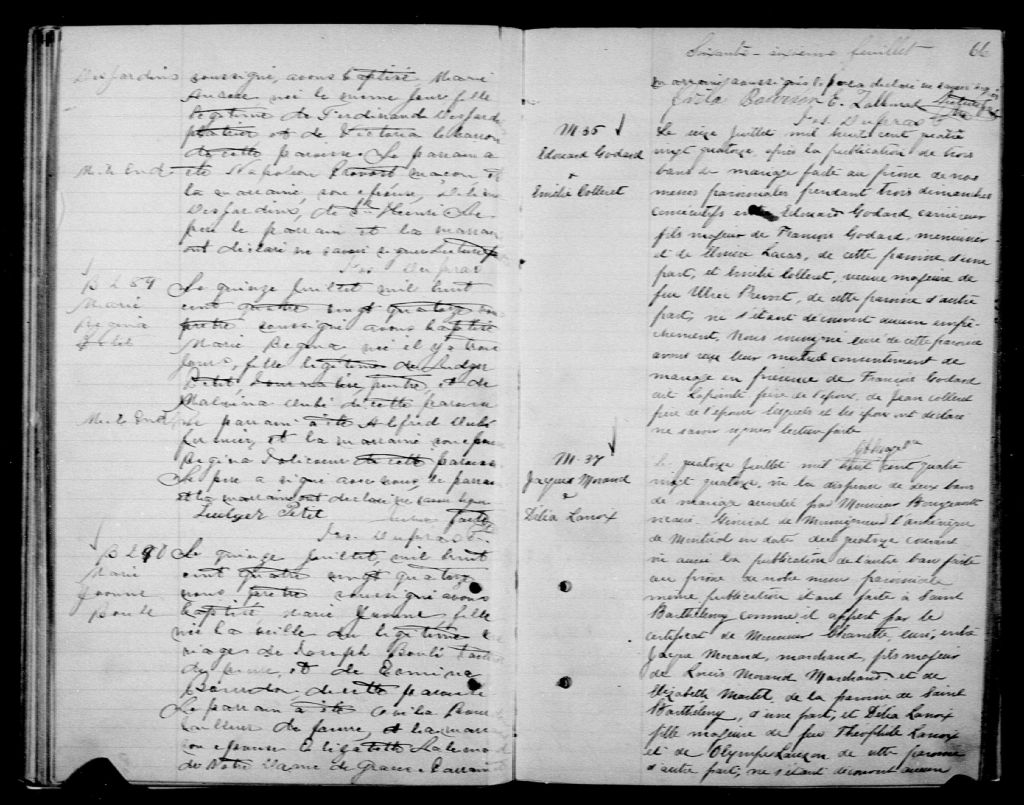 Desjardins soussigné, avons baptisé Marie
née le même jour fille
légitime de Ferdinand Desjard
et de Victoria
de cette paroisse. Le parrain a
Mile End été Napoléon Prevost maçon et
la marraine, son épouse,
Desjardins, de St Henri Le
père le parrain et la marraine
ont déclaré ne savoir signer Lecture f
Jos. Dupras
B 289 Le quinze juillet mil huit
Marie cent quatre vingt quatorze
Regina prêtre soussigné avons baptisé
Petit Marie Regina née il y a trois
jours, fille légitime de Ludger
Petit, peintre, et de
Malvina Aubé de cette paroisse
Mile End, Le parrain a été Alfred Aubé
fermier, et la marraine son épouse
Regina Jolicoeur de cette paroisse
Le père a signé avec nous le parrain
et la marraine ont déclaré ne savoir signer
Ludger Petit Lecture faite
Jos. Dupras
B 290 Le quinze juillet, mil huit
Marie cent quatre vingt quatorze
Yvonne nous prêtre soussigné avons
Boulé baptisé Marie Yvonne, fille
née la veille du légitime ma
riage de Joseph Boulé
du même, et de
Bourdon de cette paroisse
Le parrain a été
tailleur de pierre, et la marraine
son épouse Elizabeth
de Notre Dame de Grace
Soixante-sixième feuillet 66
E. Lalumet
Jos. Dupras
M 35
Edouard Godard
&
Emélie Colleret
Le seize juillet mil huit cent quatre
vingt quatorze, après la publication de trois
bans de mariage faite au prône de nos
messes paroissiales pendant trois dimanches
consécutifs entre Edouard Godard, carrieur
fils majeur de François Godard, menuisier
et de Lucas, de cette paroisse d'une
part, et Emélie Colleret, veuve majeure de
feu Prevost, de cette paroisse d'autre
part, ne s'étant découvert aucun empê-
chement, Nous soussigné curé de cette paroisse
avons reçu leur mutuel consentement de
mariage en présence de François Godard
dit Lapointe père de l'époux, de Jean Colleret
père de l'épouse lesquels et les époux ont déclaré
ne savoir signer lecture faite
M. 37
Jacques Morand
&
Délia Lanoix
Le quatorze juillet mil huit cent quatre
vingt quatorze, vu la dispense de deux bans
de mariage accordée par Monsieur Bourgeault
vicaire Général de Monseigneur l'archevêque
de Montréal en date du quatorze courant
vu aussi la publication de l'autre ban faite
au prône de notre messe paroissiale
même publication étant faite à Saint
Barthelemy comme il appert par le
certificat de Monsieur Charette, curé, entre
Jacque Morand, marchand, fils majeur
de Louis Morand Marchand et de
Elizabeth Martel de la paroisse de Saint
Barthelemy, d'une part, et Délia Lanoix
fille majeure de feu Théophile Lanoix
et de Olympe Lauzon de cette paroisse
d'autre part, ne s'étant découvert aucun